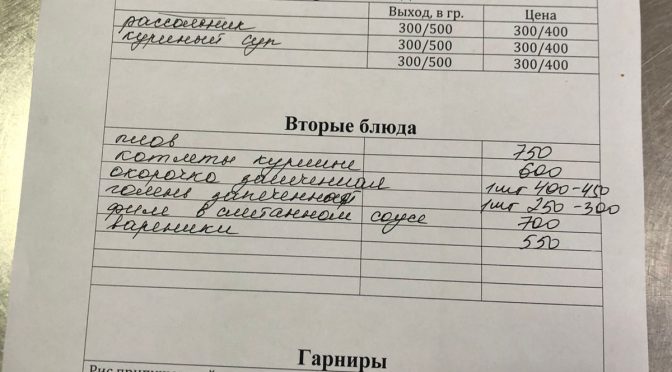 Выход, в гр. Цена
рассольник 300/500 300/400
куриный суп 300/500 300/400
300/500 300/400
Вторые блюда
плов 750
котлеты курине 600
окорочко запеченная 1шт 400-450
голень запеченная 1шт 250-300
филе в сметанном соусе 700
вареники 550
Гарниры